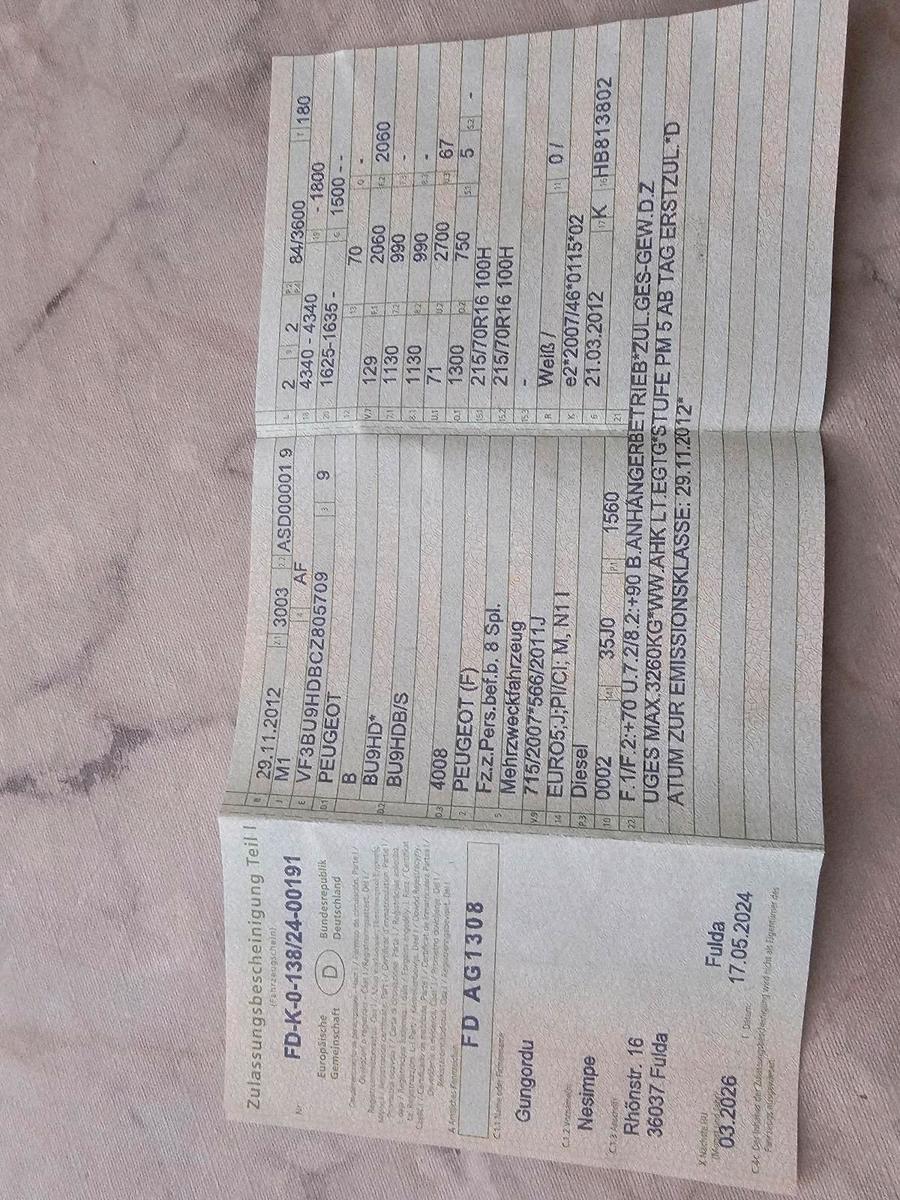 Zulassungsbescheinigung Teil I
(Fahrzeugschein)
Nr. FD-K-0-138/24-00191
Europäische Gemeinschaft
D
Bundesrepublik Deutschland
FD AG1308
C.1.1 Name oder Firmenname
Gungordu
C.1.2 Vorname(n)
Nesimpe
C.1.3 Anschrift
Rhönstr. 16
36037 Fulda
03.2026
Fulda
Datum:
17.05.2024
B 29.11.2012 2.1 3003 2.2 ASD00001 9
J M1 4 AF
E VF3BU9HDBCZ805709 3 9
D.1 PEUGEOT
D.2 B
BU9HD*
BU9HDB/S
D.3 4008
2 PEUGEOT (F)
5 Fz.z.Pers.bef.b. 8 Spl.
Mehrzweckfahrzeug
V.9 715/2007*566/2011J
14 EURO5;J;PI/CI; M, N1 I
P.3 Diesel
10 0002 14.1 35J0 P.1 1560
L 2 9 2 P.2 P.4 84/3600 T 180
18 4340 - 4340 19 - 1800
20 1625-1635 - G 1500 - -
12 13 70 Q -
V.7 129 F.1 2060 F.2 2060
7.1 1130 7.2 990 7.3 -
8.1 1130 8.2 990 8.3 -
U.1 71 U.2 2700 U.3 67
O.1 1300 O.2 750 S.1 5 S.2 -
15.1 215/70R16 100H
15.2 215/70R16 100H
15.3 -
R Weiß / 11 0 /
K e2*2007/46*0115*02
6 21.03.2012 17 K 16 HB813802
21
22 F.1/F.2:+70 U.7.2/8.2:+90 B.ANHÄNGERBETRIEB*ZUL.GES-GEW.D.Z
UGES MAX.3260KG*WW.AHK LT.EGTG*STUFE PM 5 AB TAG ERSTZUL.*D
ATUM ZUR EMISSIONSKLASSE: 29.11.2012*